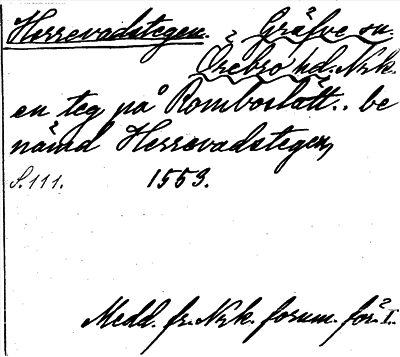 Herrevadstegen. Gräfve sn.
Örebro hd. Nrk.
en teg på Romboslätt.. be
nämd Herrevadstegen,
S. 111. 1553.
Medd. fr. Nrk. fornm. för. I.